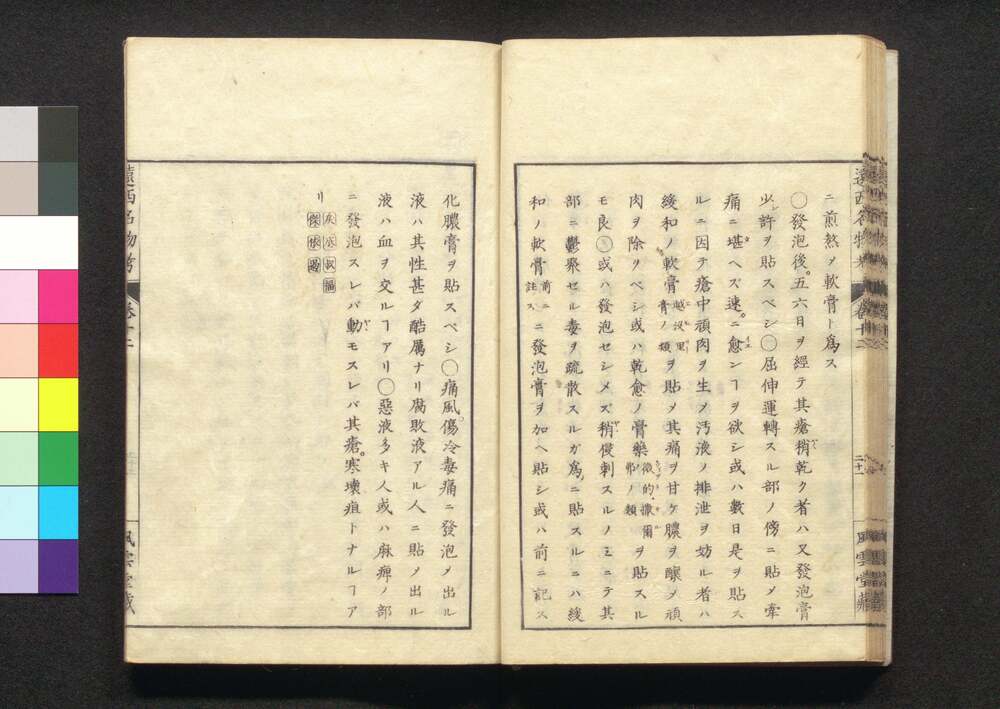 遠西名物考 卷十二 二十一 風雲堂藏
ニ煎熬〆軟膏ト爲ス
◯發泡後五六日ヲ經テ其瘡稍乾ク者ハ又發泡膏
少許ヲ貼スベシ◯屈伸運轉スル部ノ傍ニ貼〆牽
痛ニ堪ヘズ速ニ愈ンヿヲ欲シ或ハ數日是ヲ貼ス
ルニ因テ瘡中頑肉ヲ生〆汚液ノ排泄ヲ妨ル者ハ
緩和ノ軟膏 膏ノ類 ヲ貼〆其痛ヲ甘ケ膿ヲ釀〆頑
肉ヲ除クベシ或ハ乾愈ノ膏藥 ノ類 ヲ貼スル
モ良◯或ハ發泡セシメズ稍侵刺スルノミニテ其
部ニ鬱聚セル毒ヲ疏散スルガ爲ニ貼スルニハ緩
和ノ軟膏 前ニ註ス ニ發泡膏ヲ加ヘ貼シ或ハ前ニ記ス
化膿膏ヲ貼スベシ◯痛風傷冷毒痛ニ發泡〆出ル
液ハ其性甚ダ酷厲ナリ腐敗液アル人ニ貼〆出ル
液ハ血ヲ交ルヿアリ◯惡液多キ人或ハ麻痺ノ部
ニ發泡スレバ動モスレバ其瘡寒壞疽トナルヿア
リ
遠西名物考 卷十二 風雲堂藏